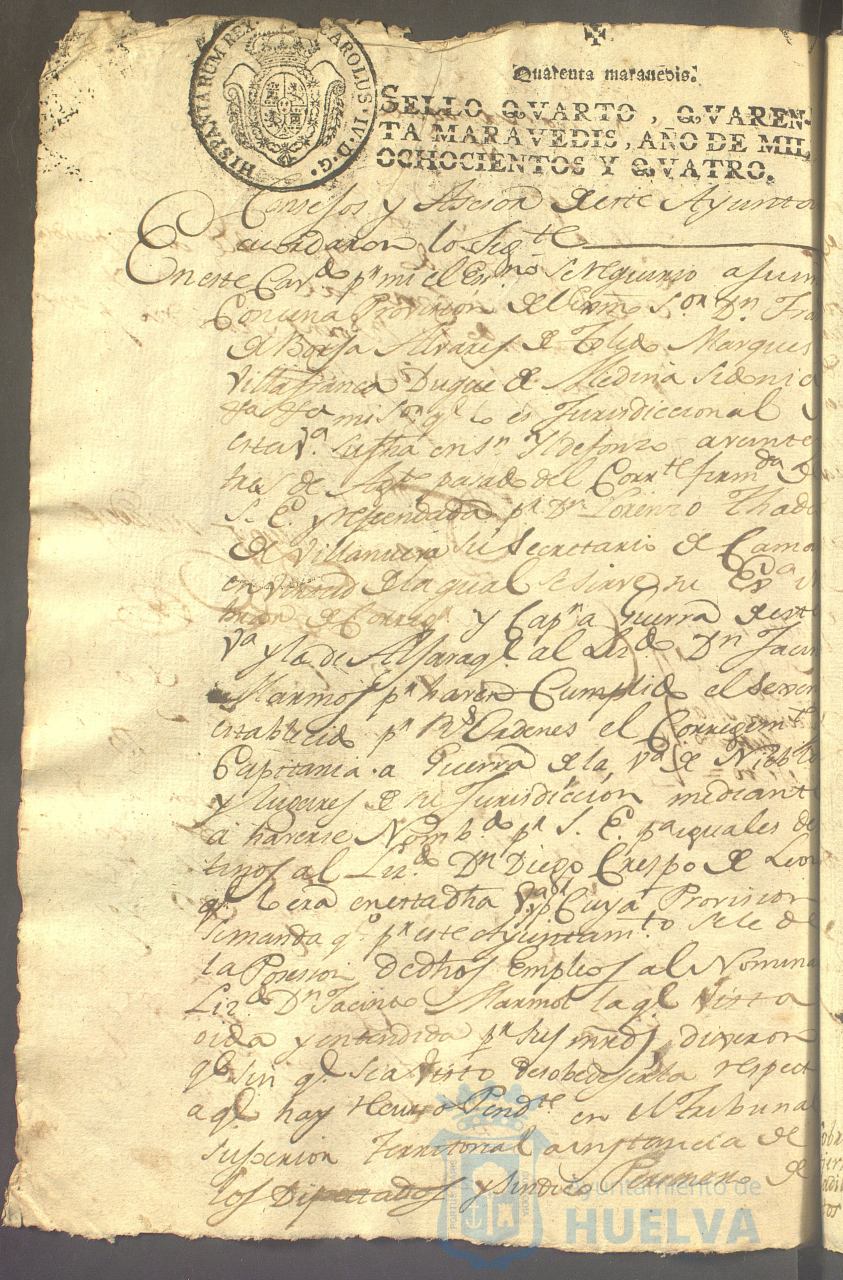 HISPANIARUM REX. CAROLUS·IV·D·G·
Quarenta marauedis.
SELLO QVARTO, QVAREN-
TA MARAVEDIS, AÑO DE MIL
OCHOCIENTOS Y QVATRO.
Consejos y Asesor de este Ayunta
acordaron lo Sigte
En este Cavdo pr mi el Esno se requirio a su m
Con una Provision del Exmo Sor Dn Fra
de Borja Alvares de Toledo Marques
Villafranca Duque de Medina Sidonia
mi Sor ql lo es Jurisdiccional
esta Va su fha en Sn Yldefonzo a veinte
tres de Agto pasado del Corrte firmda de
S. E. y refrendada pr Dn Lorenzo Thade
de Villanueva su Secretario de Cama
en virtud de la qual se sirve su Exa
de Corregr y Capn a Guerra de esta
Va y la de Alfaraqe al Lizdo Dn Jacin
Marmol pr haver Cumplido el sexen
establecido pr Rs Ordenes el Corregimto
Capitania a Guerra de la Va de Niebla
y lugares de su Jurisdiccion mediant
a haverse Nombdo pr S. E. pa iguales des
tinos al Lizdo Dn Diego Crespo de Leon
ql lo era en esta dha Va pr Cuya Provision
se manda qe pr este Ayuntamto se le de
la Posesion de dhos Empleos al Nomina
Lizdo Dn Jacinto Marmol la ql vista
oida y entendida pr sus mrds, dixeron
qe sin qe sea visto desobedeserla respect
a qe hay recurso Pendte en el Tribunal
Superior Territorial a instancia de
los Diputados y Sindico Personero de
Ayuntamiento de
HUELVA